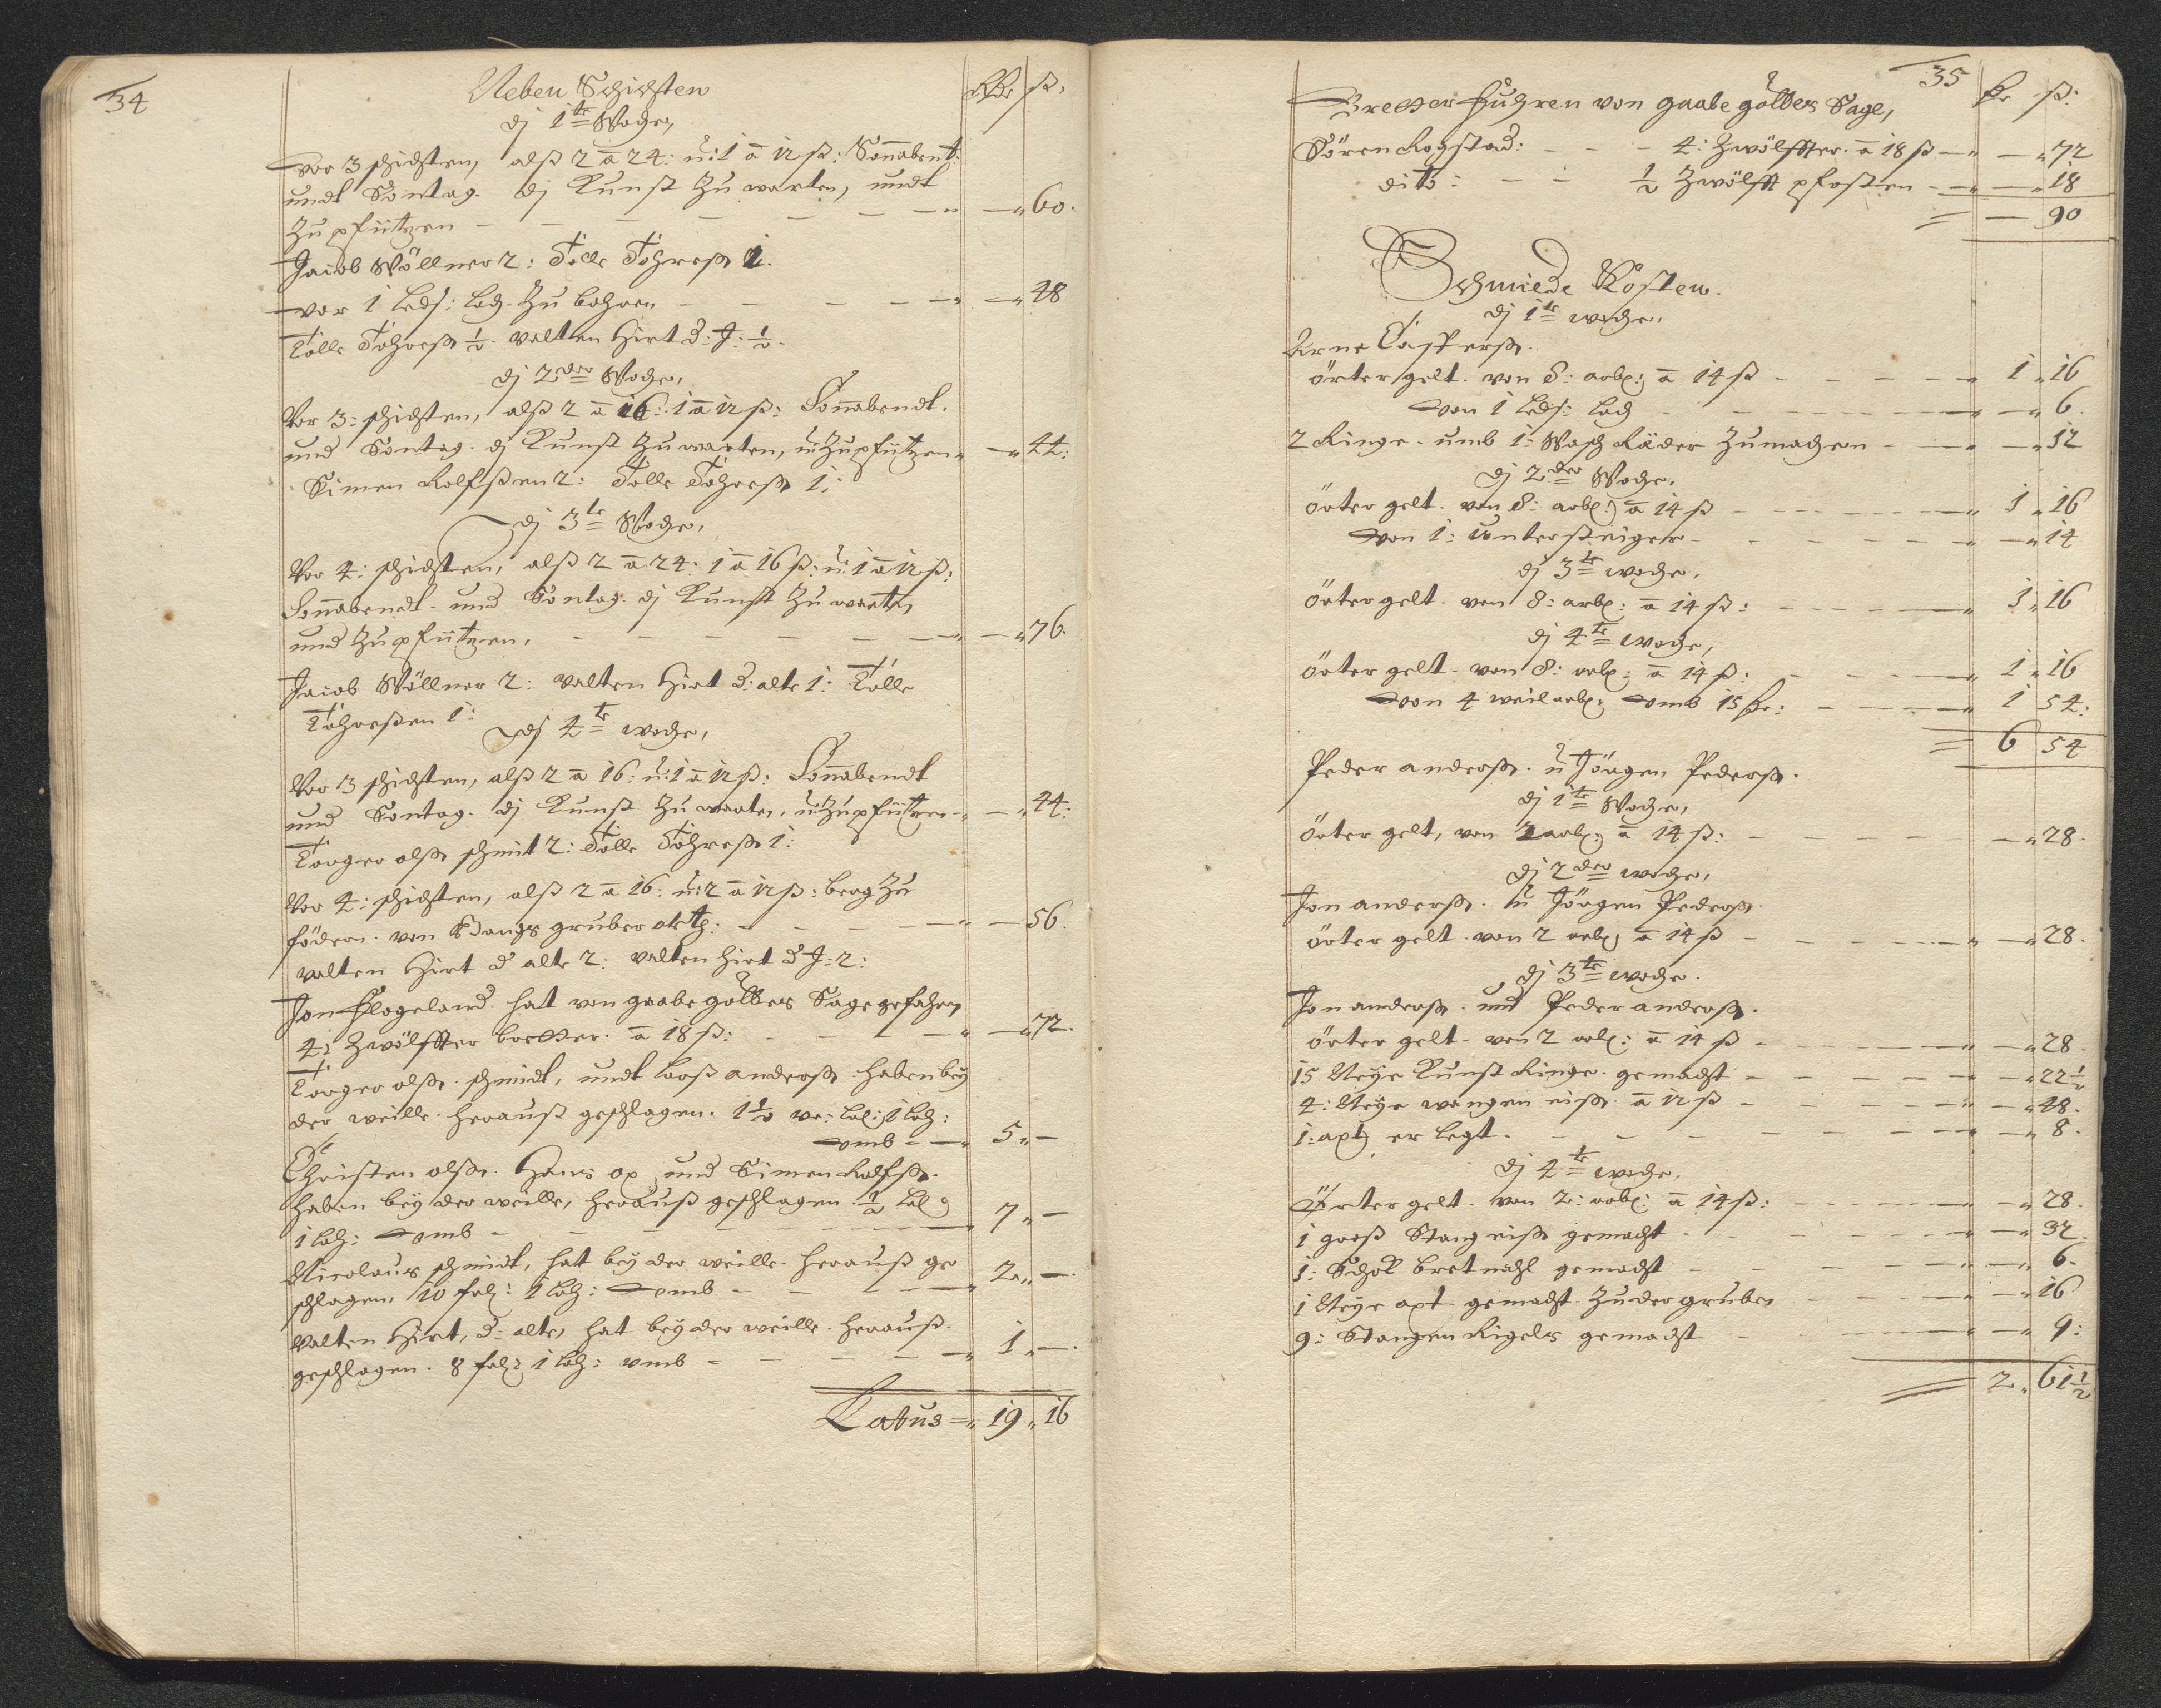 34
Neben Schichten
Rdr ß.
dj 1te Woche,
vor 3 schichten, alß 2 a 24: u: 1 a 12 ß: Sonnabent:
undt Sontag. dj Kunst zu warten, undt
zu pfützen — „ — „ 60.
Jacob Wöllner 2: Tolle Tohreß 1.
vor 1 Lechf: Loch zu bohren — „ — „ 48
Tolle Tohreß ½. valtten Hirt d: J: ½.
dj 2der Woche,
Vor 3: schichten, alß 2 a 16: 1 a 12 ß: Sonnabendt.
und Sontag. dj Kunst zu warten, u: zu pfützen „ — „ 44:
Simen Rolfßen 2: Tolle Tohreß 1:
dj 3te Woche,
Vor 4: schichten, alß 2 a 24: 1 a 16 ß: u: 1 a 12 ß:
Sonnabendt. und Sontag. dj Kunst zu warten
und zu pfützen, — „ — „ 76.
Jacob Wöllner 2: valten Hirt d: alte 1: Tolle
Tohreßen 1:
dj 4te woche,
Vor 3 schichten, alß 2 a 16: u: 1 a 12 ß: Sonnabendt
und Sontag. dj Kunst zu warten, u: zu pfützen — „ — „ 44:
Torger olß schmit 2: Tolle Tohreß 1:
Vor 4: schichten, alß 2 a 16: u: 2 a 12 ß: berg zu
födern. von gruber — „ — 56.
valten Hirt d alte 2: valten Hirt d J: 2:
Jon Flogeland. hat von gaabe golbers Sage gefahren
4: zwölffter bretter. a 18 ß: — „ — „ 72.
Torger olß. schmidt, undt Larß anderß. haben bey
der weille. herauß geschlagen. 1½ 1 Lch:
vmb — „ 5 „ —
Christen olß. Hans und Simen Rolfß.
haben bey der weille, herauß geschlagen. ½ Lch
1 Lch: vmb — 7 „ —
Nicolaus schmidt, hat bey der weille. herauß ge
schlagen, 10 1 Lch: vmb — 2 „ —
Valten Hirt, d: alte, hat bey der weille. herauß.
geschlagen. 8 1 Lch: vmb — „ 1 „ —
Latus = „ 19 „ 16
35
ß:
Bretter Fuhren von gaabe golbers Sage,
Sören Rogstad: — 4: zwölffter. a 18 ß — „ — „ 72
dito: — ½ zwölfft pfosten — „ — „ 18
= — 90
Schmiede Kosten.
dj 1te woche,
Arne Casperß.
örter gelt. von 8: arb: a 14 ß — „ 1 „ 16
von 1 Lechf: Loch — „ — „ 6.
2 Ringe. umb 1: Wasch Räder zu machen — „ — „ 32
dj 2der Woche.
örter gelt. von 8: arb: a 14 ß — „ 1 „ 16
von 1: untersteiger — „ — „ 14
dj 3te woche.
örter gelt. von 8: arb: a 14 ß: — „ 1 „ 16
dj 4te woche,
örter gelt. von 8: arb: a 14 ß: — „ 1 „ 16
von 4 weilarb: vmb 15 — „ 1 54:
= 6 54
Peder anderß. u Jörgen Pederß.
dj 1te Woche,
örter gelt, von 2 arb: a 14 ß: — „ 28.
dj 2der woche,
Jon anderß. u Jörgen Pederß.
örter gelt. von 2 arb: a 14 ß — „ — „ 28.
dj 3te woche.
Jon anderß. und Peder anderß.
örter gelt. von 2 arb: a 14 ß — „ — „ 28.
15 Neye Kunst Ringe. gemacht — „ — „ 22½
4: Neye wangen eiß. a 12 ß — „ — „ 48.
1: axt er legt. — „ — „ 8.
dj 4te woche,
Örter gelt. von 2: arb: a 14 ß: — „ — „ 28.
1 groß Stang eiß gemacht — „ — „ 32.
1: Schok bret nahl gemacht — „ — „ 6.
1 Neye axt gemacht. zu der gruben — „ — „ 16
9: Stangen Rigels gemacht — „ — „ 9:
= 2 „ 61½